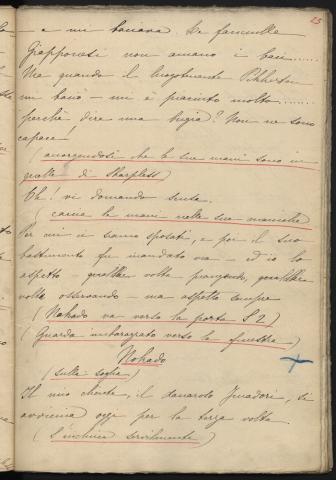 23
e mi baciava. Le fanciulle
Giapponesi non amano i baci .....
Ma quando il luogotenente Pikkerton
mi baciò - mi è piaciuto molto .......
perchè dire una bugia? Non ne sono
capace!
(accorgendosi che le sue mani sono in
quelle di Sharpless)
Oh! vi domando scusa.
caccia le mani nelle sue maniche
Per mi ci siamo sposati, e per il suo
bastimento fu mandato via - ed io lo
aspetto - qualche volta piangendo, qualche
volta osservando - ma aspetto sempre
(Nakado va verso la porta S2)
(Guarda imbarazzato verso la finestra)
Nakado
(sulla soglia)
Il mio cliente, il danaroso Jamadori, si
avvicina oggi per la terza volta.
(S'inchina servilmente)